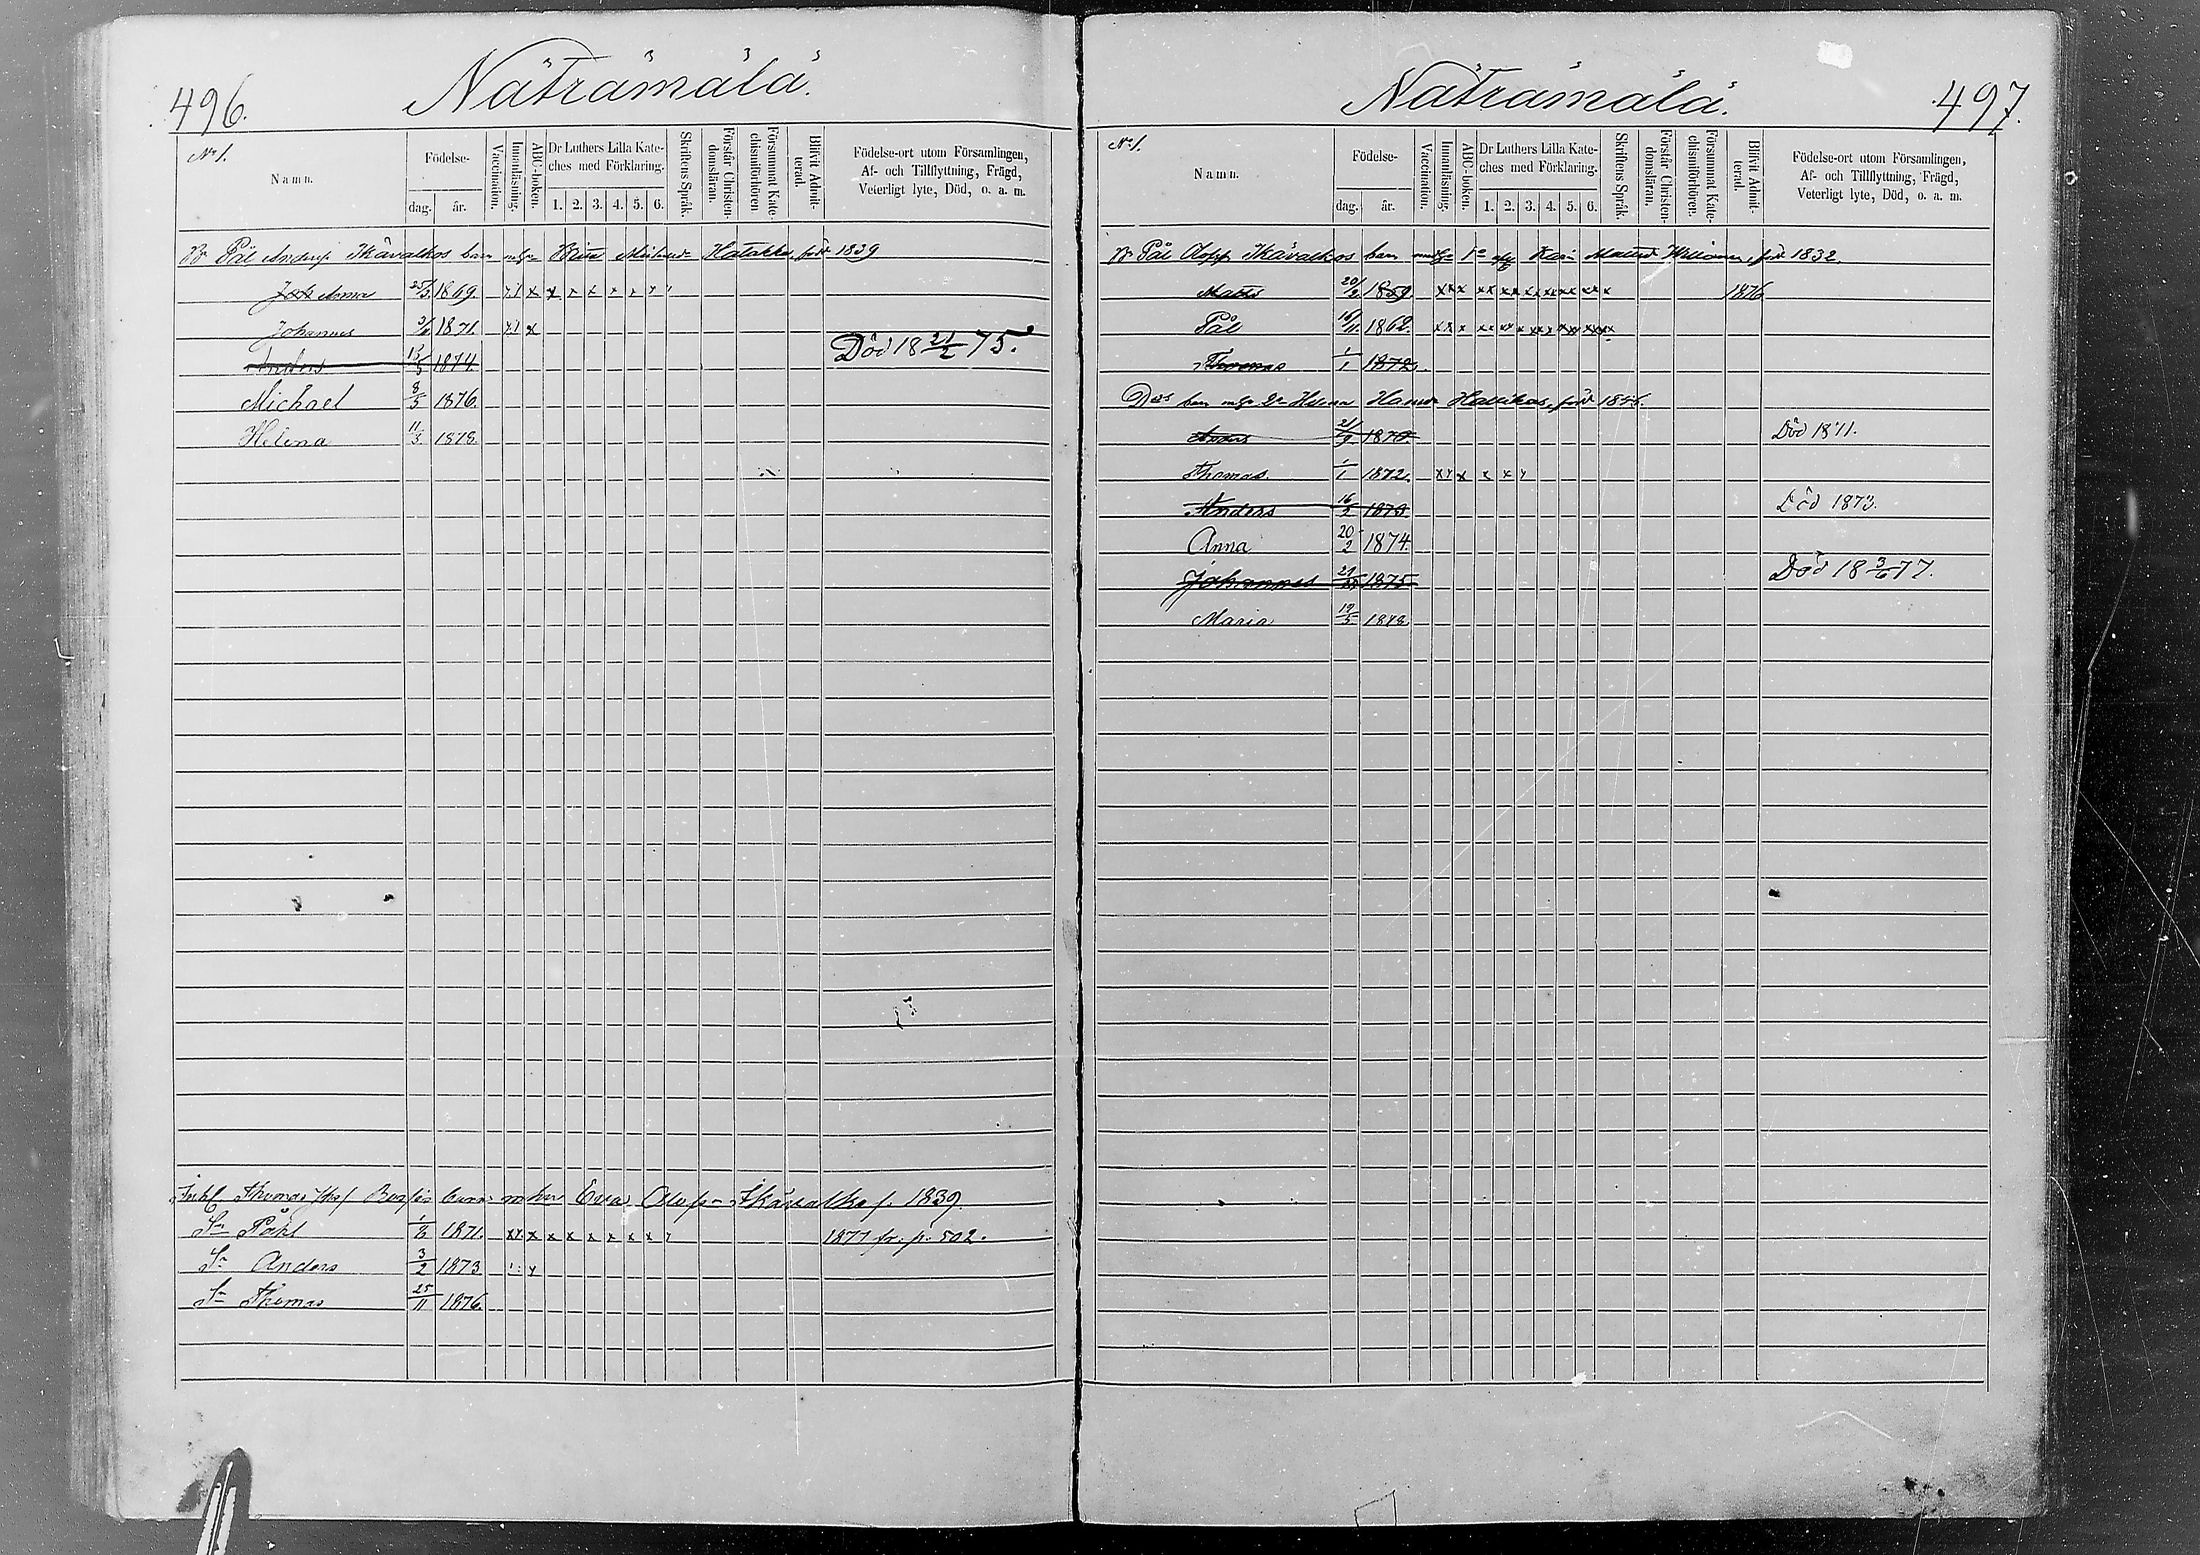 496.
Näträmälä.
No 1.
Namn.
Födelse-
dag. år.
Vaccination.
Innanläsning.
ABC-boken.
Dr Luthers Lilla Kate-
ches med Förklaring.
1. 2. 3. 4. 5. 6.
Skriftens Språk.
Förstår Christen-
domsläran.
Försummat Kate-
chismiförhören
Blifvit Admit-
terad.
Födelse-ort utom Församlingen,
Af- och Tillflyttning, Frägd,
Veterligt lyte, Död, o. a. m.
Bn Pål Andersp. Skävalkos barn född 1839
Anna 25/3 1869. x x x x x x x
Johannes 1871. x
Anders 13/5 1874. Död 18 21/2 75.
Michael 8/5 1876.
Helena 11/3 1878.
Inh Thomas barn m hu Eva Olofs- Skävalko f. 1839.
Sn Påhl 1/8 1871. xx x x x x x x x 1877 fr. p. 502.
Sn Anders 3/2 1873
Sn Thomas 25/11 1876.
497.
Näträmälä.
No 1.
Namn.
Födelse-
dag. år.
Vaccination.
Innanläsning.
ABC-boken.
Dr Luthers Lilla Kate-
ches med Förklaring.
1. 2. 3. 4. 5. 6.
Skriftens Språk.
Förstår Christen-
domsläran.
Försummat Kate-
chismiförhören.
Blifvit Admit-
terad.
Födelse-ort utom Församlingen,
Af- och Tillflyttning, Frägd,
Veterligt lyte, Död, o. a. m.
Bn Pål Olofsp. Skävalkos barn Karin född 1832.
Matts 20/2 1859. xxx xx xx xx xx xx xxx x 1876
Pål 16/11 1862. xxx xx xx x xx x xx xxxx
Thomas 1/1 1872.
Dess barn Helena Hansd.
21/9 1870. Död 1871.
Thomas. 1/1 1872. xx x x x
Anders 16/3 1873 Död 1873.
Anna 20/2 1874.
Johannes 1875 Död 18 3/6 77.
Maria 19/5 1878